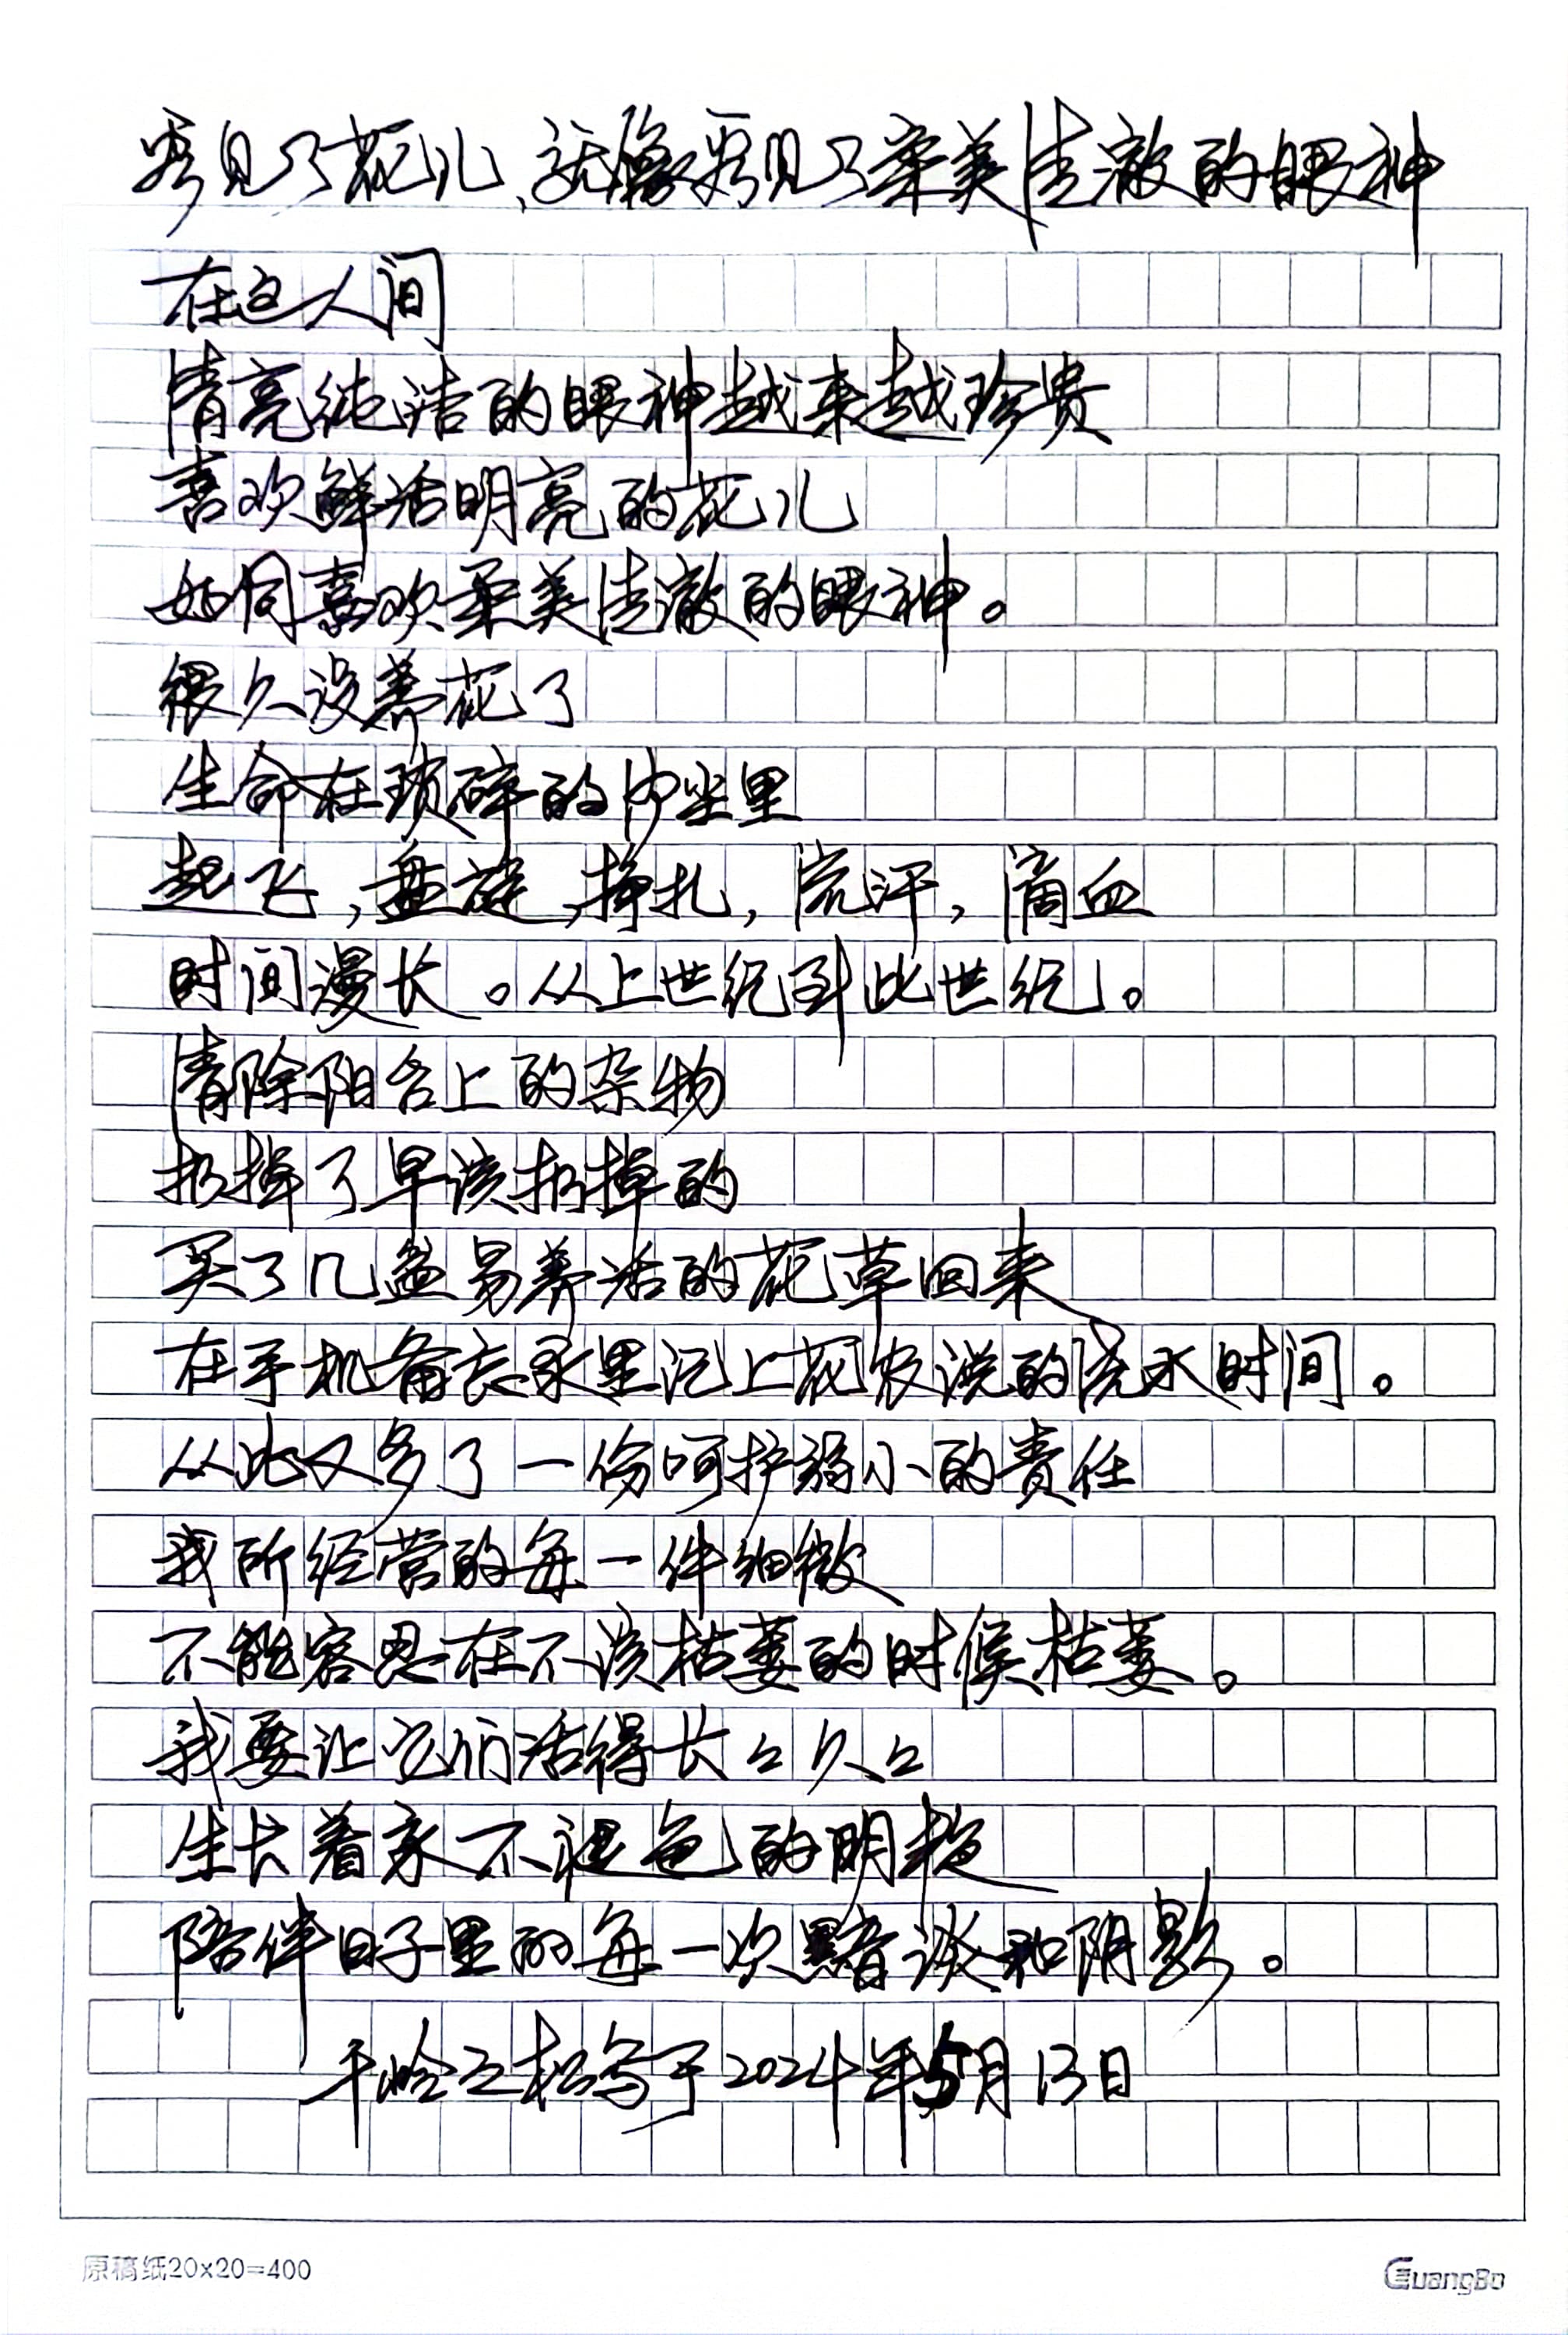 看见了花儿，就像看见了柔美清澈的眼神
在这人间
清亮纯洁的眼神越来越珍贵
喜欢鲜活明亮的花儿
如同喜欢柔美清澈的眼神。
很久没养花了
生命在琐碎的沙尘里
起飞，盘旋，挣扎，流汗，滴血
时间漫长。从上世纪到此世纪。
清除阳台上的杂物
扔掉了早该扔掉的
买了几盆易养活的花草回来
在手机备忘录里记上花农说的浇水时间。
从此又多了一份呵护弱小的责任
我所经营的每一件细微
不能容忍在不该枯萎的时候枯萎。
我要让它们活得长长久久
生长着永不褪色的明艳
陪伴日子里的每一次黯淡和阴影。
千岭之松写于2024年5月13日
原稿纸20×20=400
GuangBo